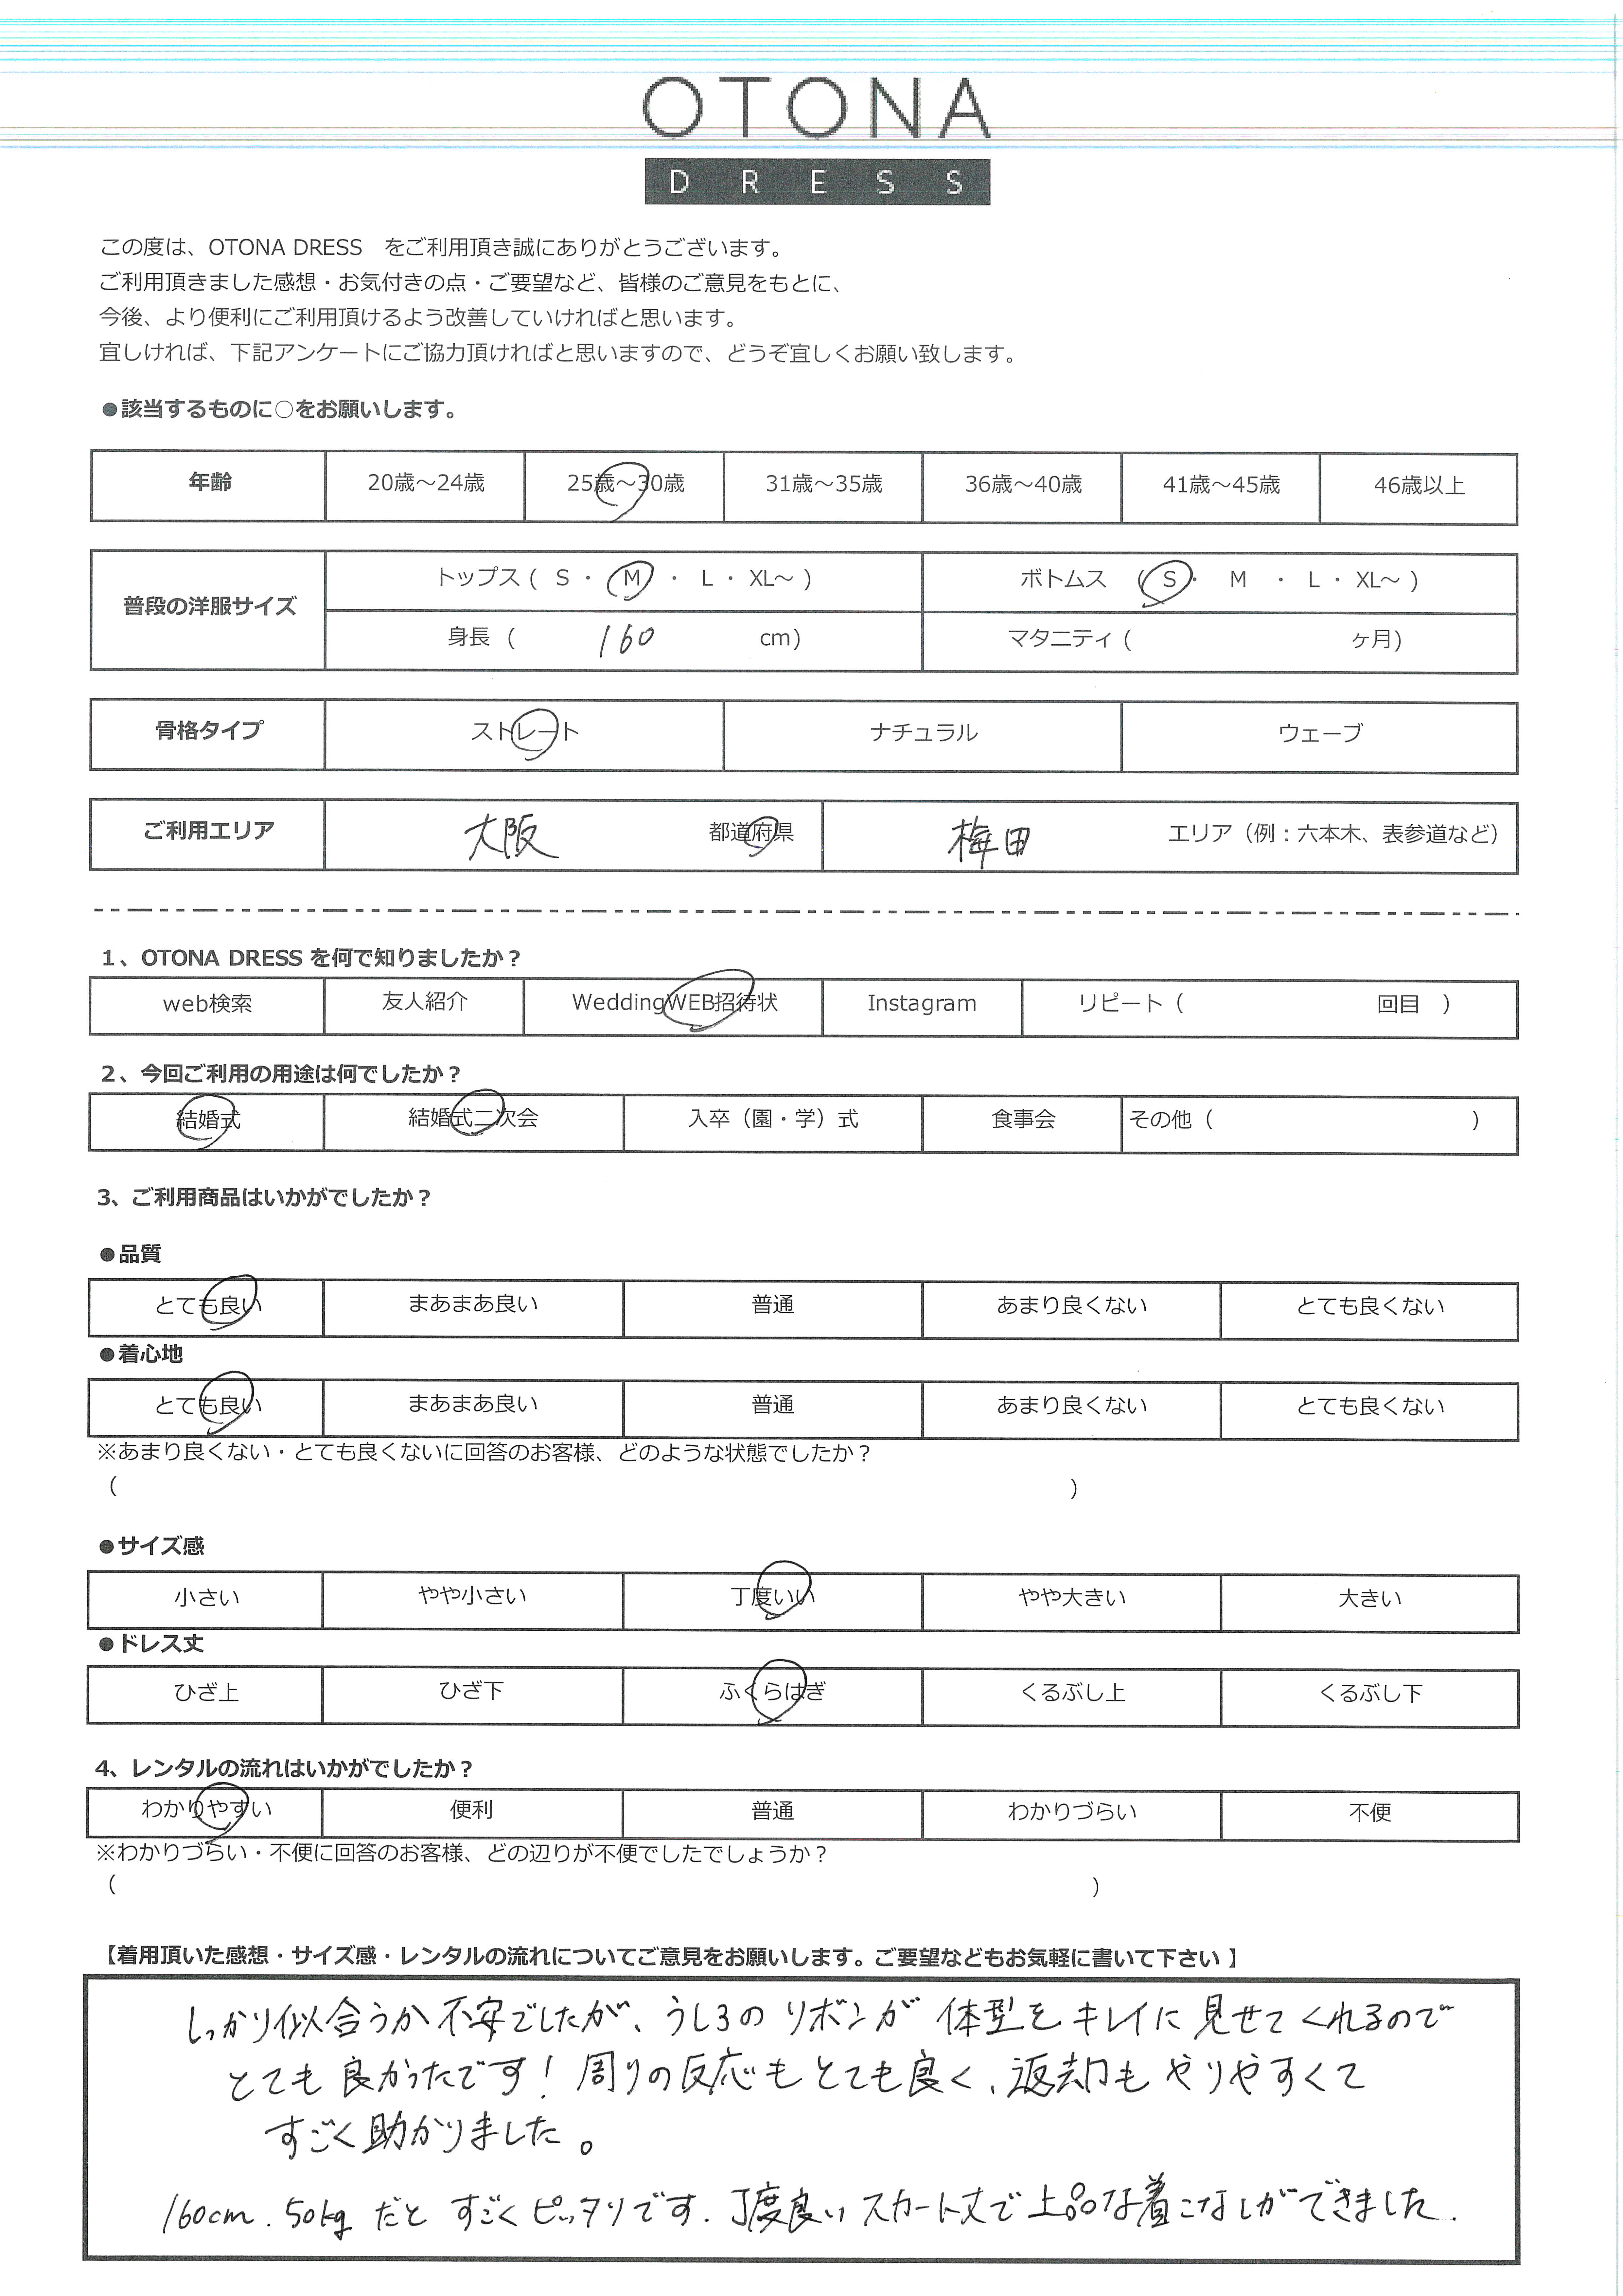 OTONA
DRESS
この度は、OTONA DRESS をご利用頂き誠にありがとうございます。
ご利用頂きました感想・お気付きの点・ご要望など、皆様のご意見をもとに、
今後、より便利にご利用頂けるよう改善していければと思います。
宜しければ、下記アンケートにご協力頂ければと思いますので、どうぞ宜しくお願い致します。
●該当するものに○をお願いします。
年齢 20歳～24歳 25歳～30歳 31歳～35歳 36歳～40歳 41歳～45歳 46歳以上
普段の洋服サイズ トップス ( S ・ M ・ L ・ XL～ ) ボトムス ( S ・ M ・ L ・ XL～ )
身長 ( 160 cm) マタニティ ( ヶ月)
骨格タイプ ストレート ナチュラル ウェーブ
ご利用エリア 大阪 都道府県 梅田 エリア（例：六本木、表参道など）
1、OTONA DRESS を何で知りましたか？
web検索 友人紹介 WeddingWEB招待状 Instagram リピート（ 回目 ）
2、今回ご利用の用途は何でしたか？
結婚式 結婚式二次会 入卒（園・学）式 食事会 その他（ ）
3、ご利用商品はいかがでしたか？
●品質
とても良い まあまあ良い 普通 あまり良くない とても良くない
●着心地
とても良い まあまあ良い 普通 あまり良くない とても良くない
※あまり良くない・とても良くないに回答のお客様、どのような状態でしたか？
（ ）
●サイズ感
小さい やや小さい 丁度いい やや大きい 大きい
●ドレス丈
ひざ上 ひざ下 ふくらはぎ くるぶし上 くるぶし下
4、レンタルの流れはいかがでしたか？
わかりやすい 便利 普通 わかりづらい 不便
※わかりづらい・不便に回答のお客様、どの辺りが不便でしたでしょうか？
（ ）
【着用頂いた感想・サイズ感・レンタルの流れについてご意見をお願いします。ご要望などもお気軽に書いて下さい 】
しっかり似合うか不安でしたが、うしろのリボンが体型をキレイに見せてくれるので
とても良かったです！周りの反応もとても良く、返却もやりやすくて
すごく助かりました。
160cm.50kgだとすごくピッタリです.丁度良いスカート丈で上品な着こなしができました.